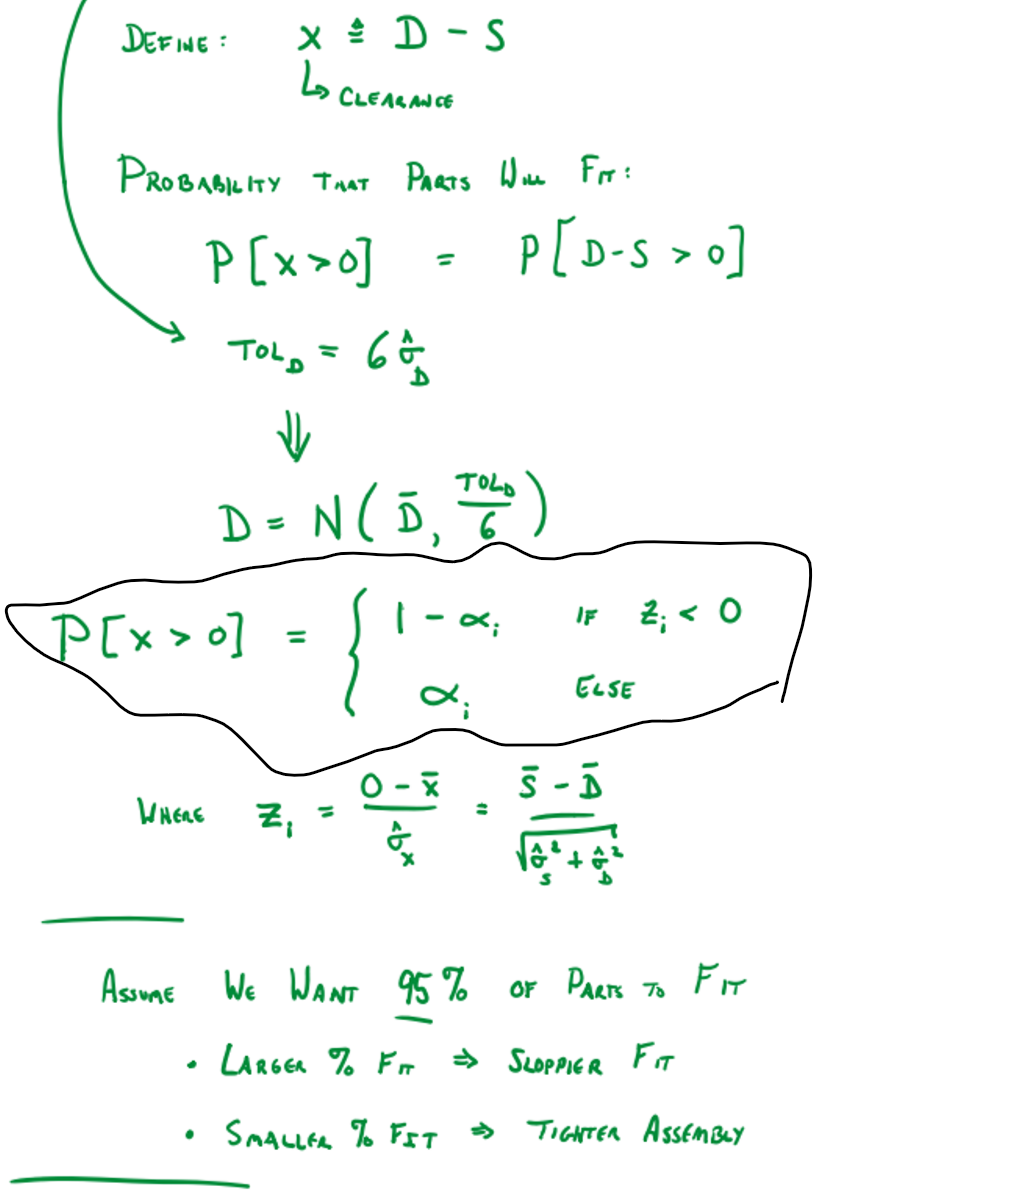 DEFINE: x ≜ D - S
↳ CLEARANCE
PROBABILITY THAT PARTS WILL FIT:
P[x>0] = P[D-S > 0]
TOL_D = 6 σ̂_D
⇓
D = N( D̄, TOL_D/6 )
P[x > 0] = { 1 - α_i IF z_i < 0
α_i ELSE
WHERE z_i = (0 - x̄)/σ̂_x = (S̄ - D̄)/√(σ̂_S² + σ̂_D²)
ASSUME WE WANT 95% OF PARTS TO FIT
• LARGER % FIT ⇒ SLOPPIER FIT
• SMALLER % FIT ⇒ TIGHTER ASSEMBLY